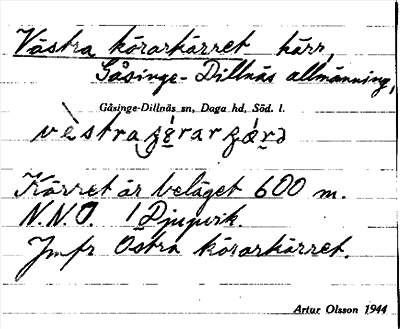 Västra körarkärret kärr,
Gåsinge-Dillnäs allmänning,
Gåsinge-Dillnäs sn, Daga hd, Söd. l.
Kärret är beläget 600 m.
N.N.O. / Djupvik.
Jmfr Östra körarkärret.
Artur Olsson 1944